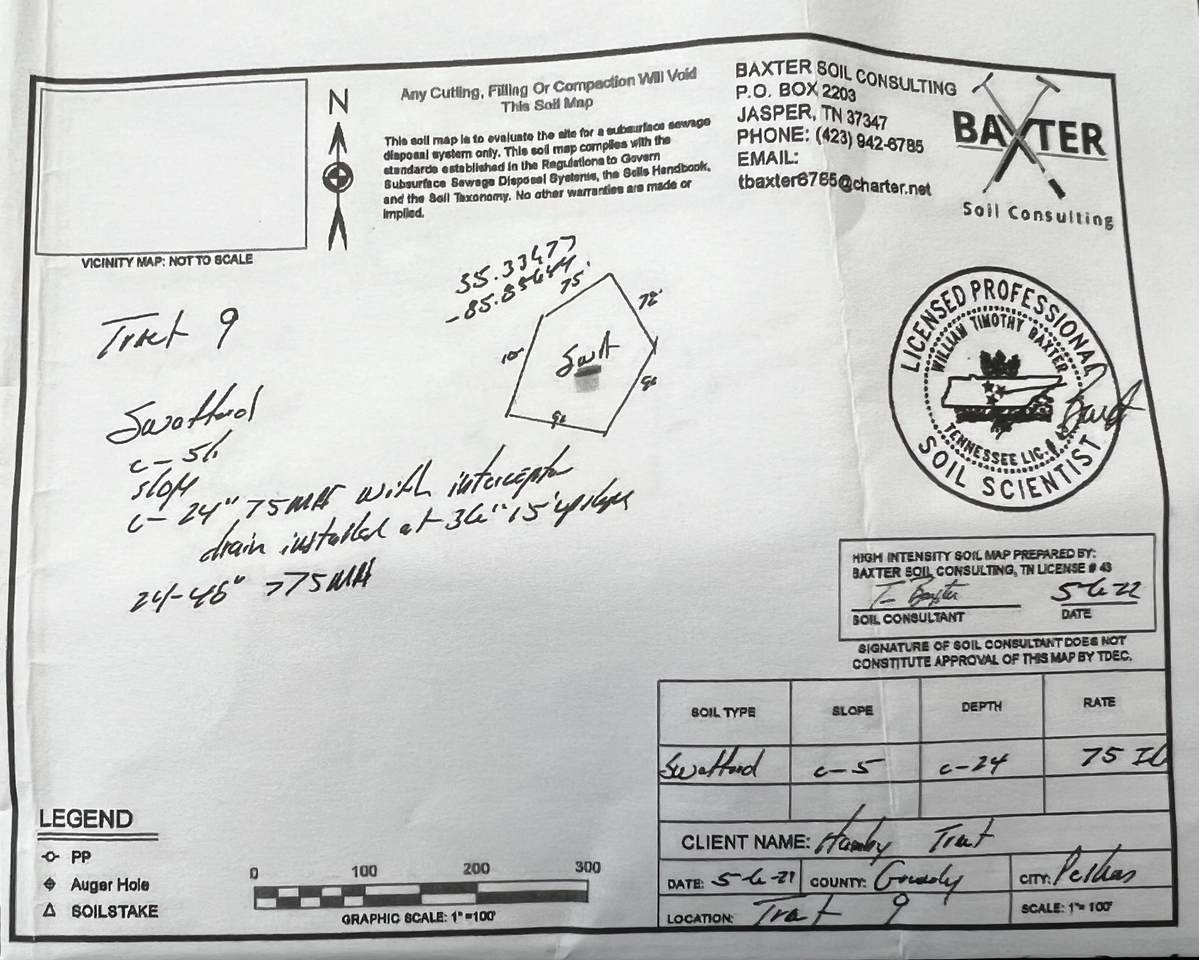 N
Any Cutting, Filling Or Compaction Will Void
This Soil Map
This soil map is to evaluate the site for a subsurface sewage
disposal system only. This soil map complies with the
standards established in the Regulations to Govern
Subsurface Sewage Disposal Systems, the Soils Handbook,
and the Soil Taxonomy. No other warranties are made or
implied.
BAXTER SOIL CONSULTING
P.O. BOX 2203
JASPER, TN 37347
PHONE: (423) 942-6785
EMAIL:
tbaxter6785@charter.net
BAXTER
Soil Consulting
VICINITY MAP: NOT TO SCALE
35.33477
75'
Tract 9
Swafford
slope
24" 75 with interceptor
drain installed at 36" 15' upslope
24-48" >75
LICENSED PROFESSIONAL
WILLIAM TIMOTHY BAXTER
TENNESSEE LIC. # 43
SOIL SCIENTIST
HIGH INTENSITY SOIL MAP PREPARED BY:
BAXTER SOIL CONSULTING, TN LICENSE # 43
T Baxter 5-6-22
SOIL CONSULTANT DATE
SIGNATURE OF SOIL CONSULTANT DOES NOT
CONSTITUTE APPROVAL OF THIS MAP BY TDEC.
SOIL TYPE SLOPE DEPTH RATE
Swafford 75
CLIENT NAME: Hamby Tract
DATE: COUNTY: Grundy CITY: Pelham
LOCATION: Tract 9 SCALE: 1"= 100'
LEGEND
PP
Auger Hole
SOILSTAKE
0 100 200 300
GRAPHIC SCALE: 1" =100'